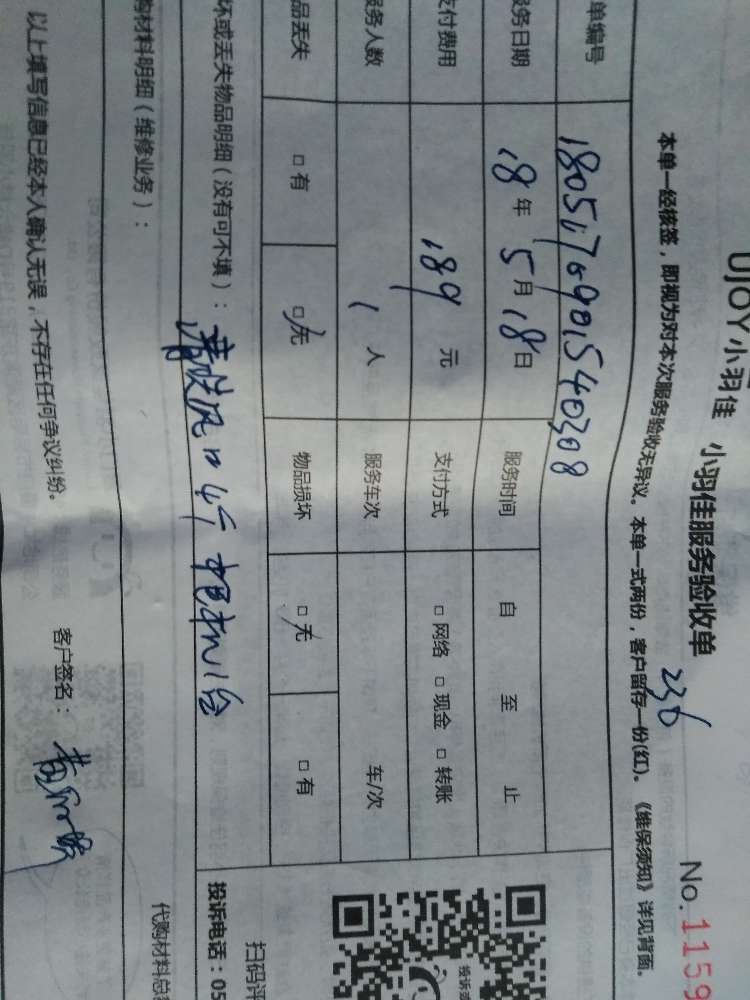 UJOY小羽佳 小羽佳服务验收单
No.1159
236
本单一经核签，即视为对本次服务验收无异议。本单一式两份，客户留存一份(红)。《维保须知》详见背面。
单编号 1805170901540308
服务日期 18年5月18日 服务时间 自 至 止
支付费用 189元 支付方式 □网络 □现金 □转账
服务人数 1人 服务车次 车/次
品丢失 □有 □无 物品损坏 □无 □有
坏或丢失物品明细（没有可不填）：
购材料明细（维修业务）：
代购材料总
扫码评
投诉电话：05
以上填写信息已经本人确认无误，不存在任何争议纠纷。 客户签名：